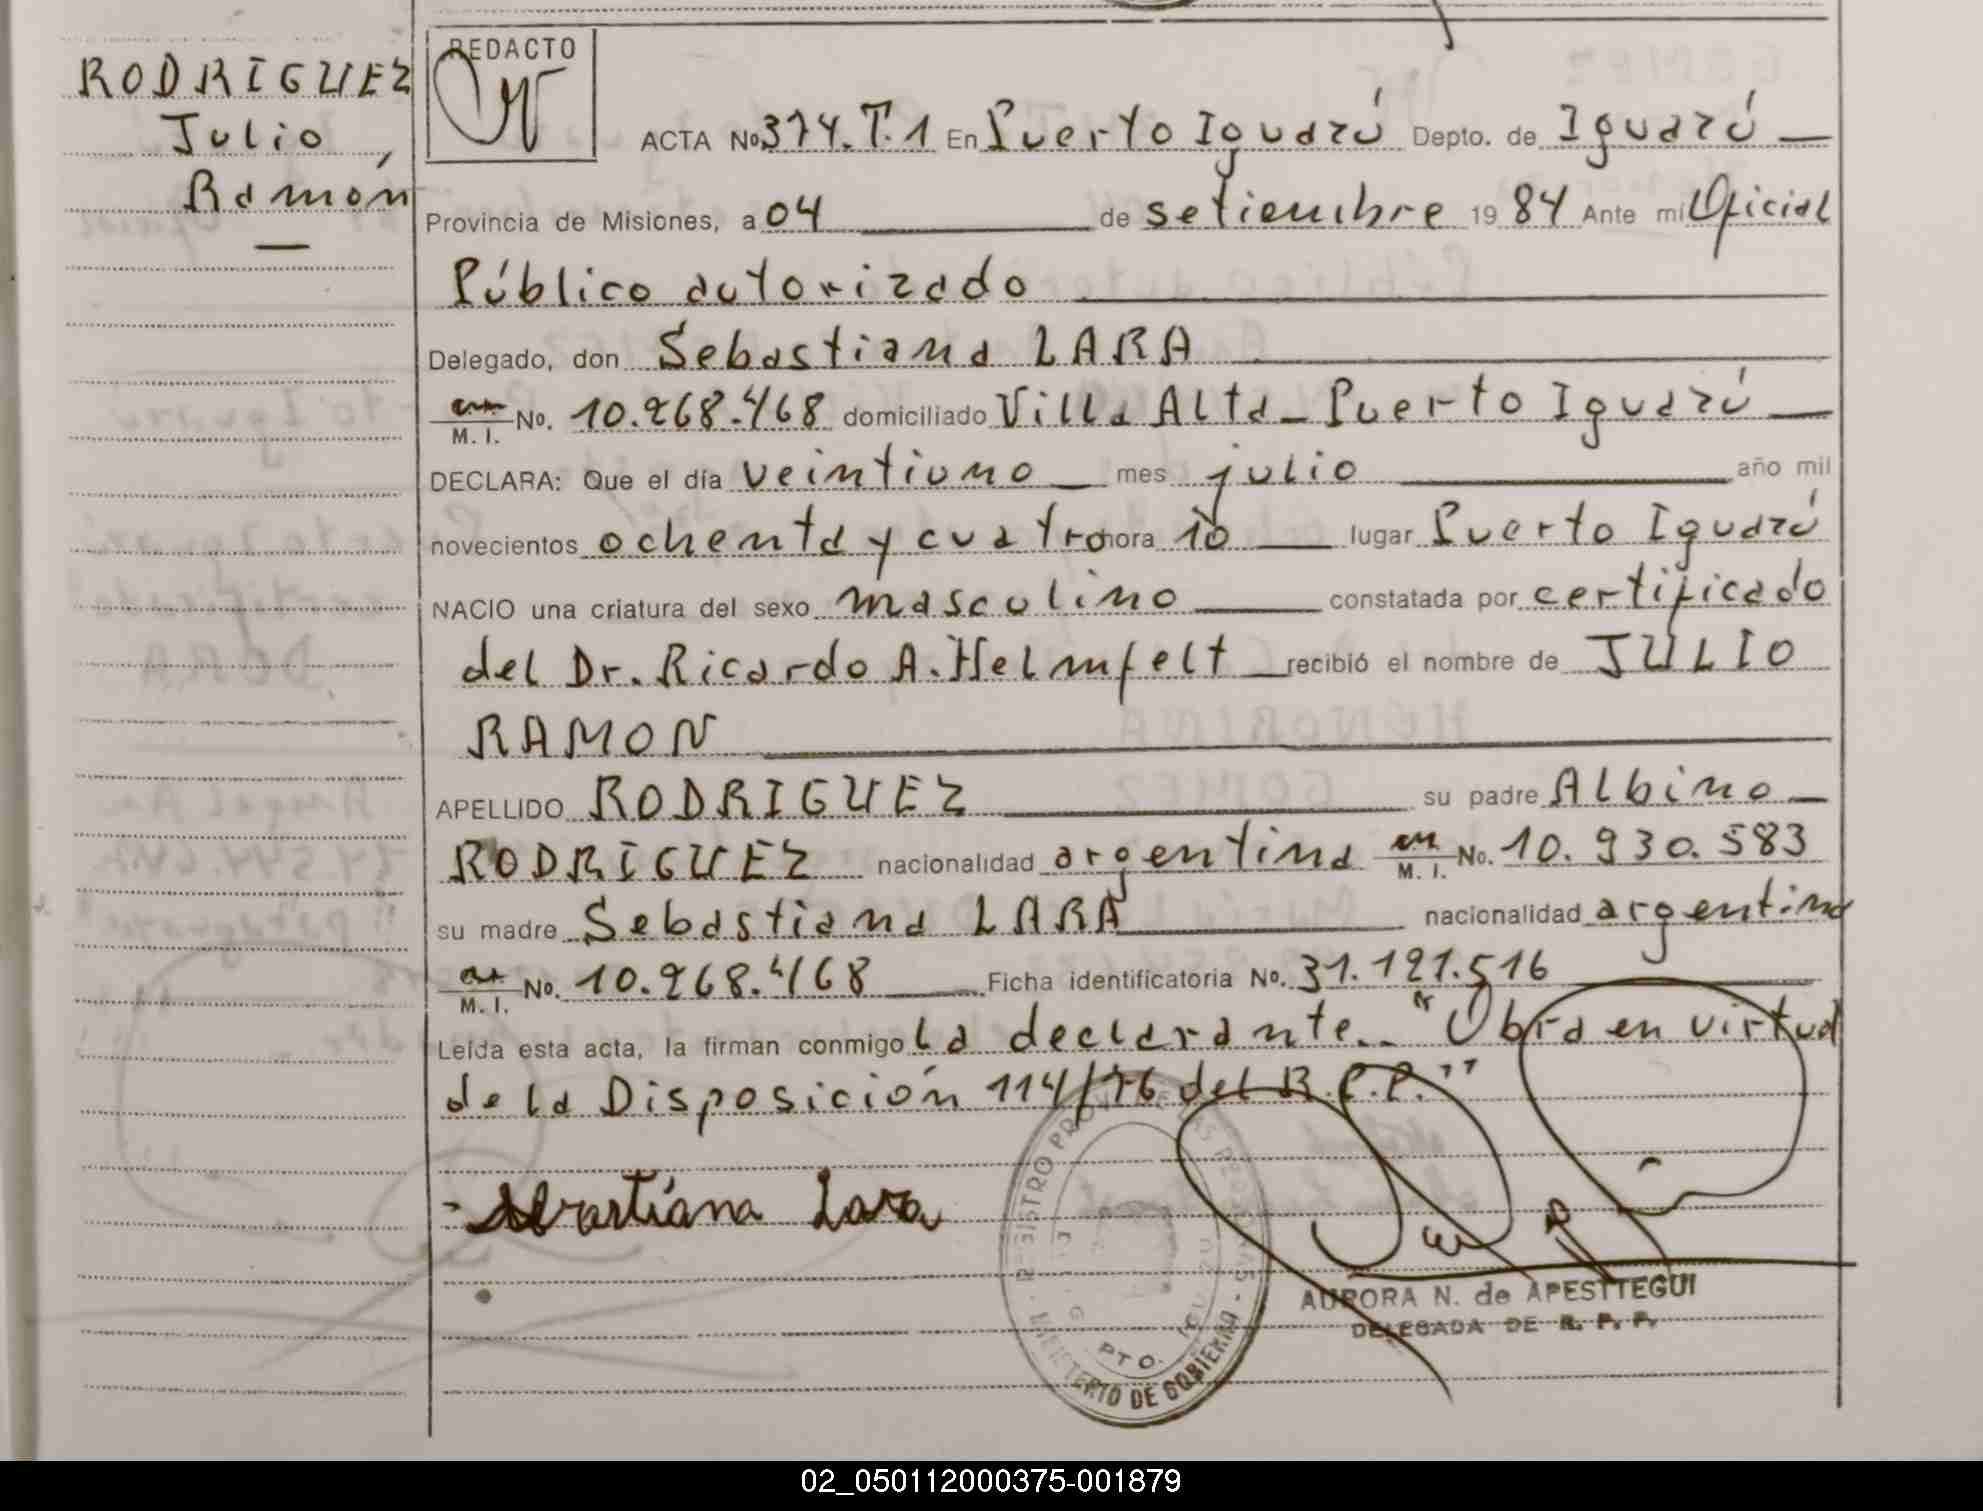 RODRIGUEZ
Julio
Ramón
REDACTO
ACTA No 374.T.1 En Puerto Iguazú Depto. de Iguazú
Provincia de Misiones, a 04 de setiembre 19 84 Ante mí Oficial
Público autorizado
Delegado, don Sebastiana LARA
M. I. No. 10.268.468 domiciliado Villa Alta - Puerto Iguazú
DECLARA: Que el día veintiuno mes julio año mil
novecientos ochenta y cuatro hora 10 lugar Puerto Iguazú
NACIO una criatura del sexo masculino constatada por certificado
del Dr. Ricardo A. Helmfelt recibió el nombre de JULIO
RAMON
APELLIDO RODRIGUEZ su padre Albino
RODRIGUEZ nacionalidad argentina M. I. No. 10.930.583
su madre Sebastiana LARA nacionalidad argentina
M. I. No. 10.268.468 Ficha identificatoria No. 31.121.516
Leída esta acta, la firman conmigo la declarante.. "Obra en virtud
de la Disposición 114/76 del R.P.P."
Sebastiana Lara
MINISTERIO DE GOBIERNO
PTO.
AURORA N. de APESTTEGUI
DELEGADA DE R. P. P.
02_050112000375-001879